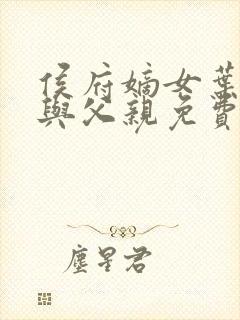 侯府嫡女葉
與父親免費
塵星君